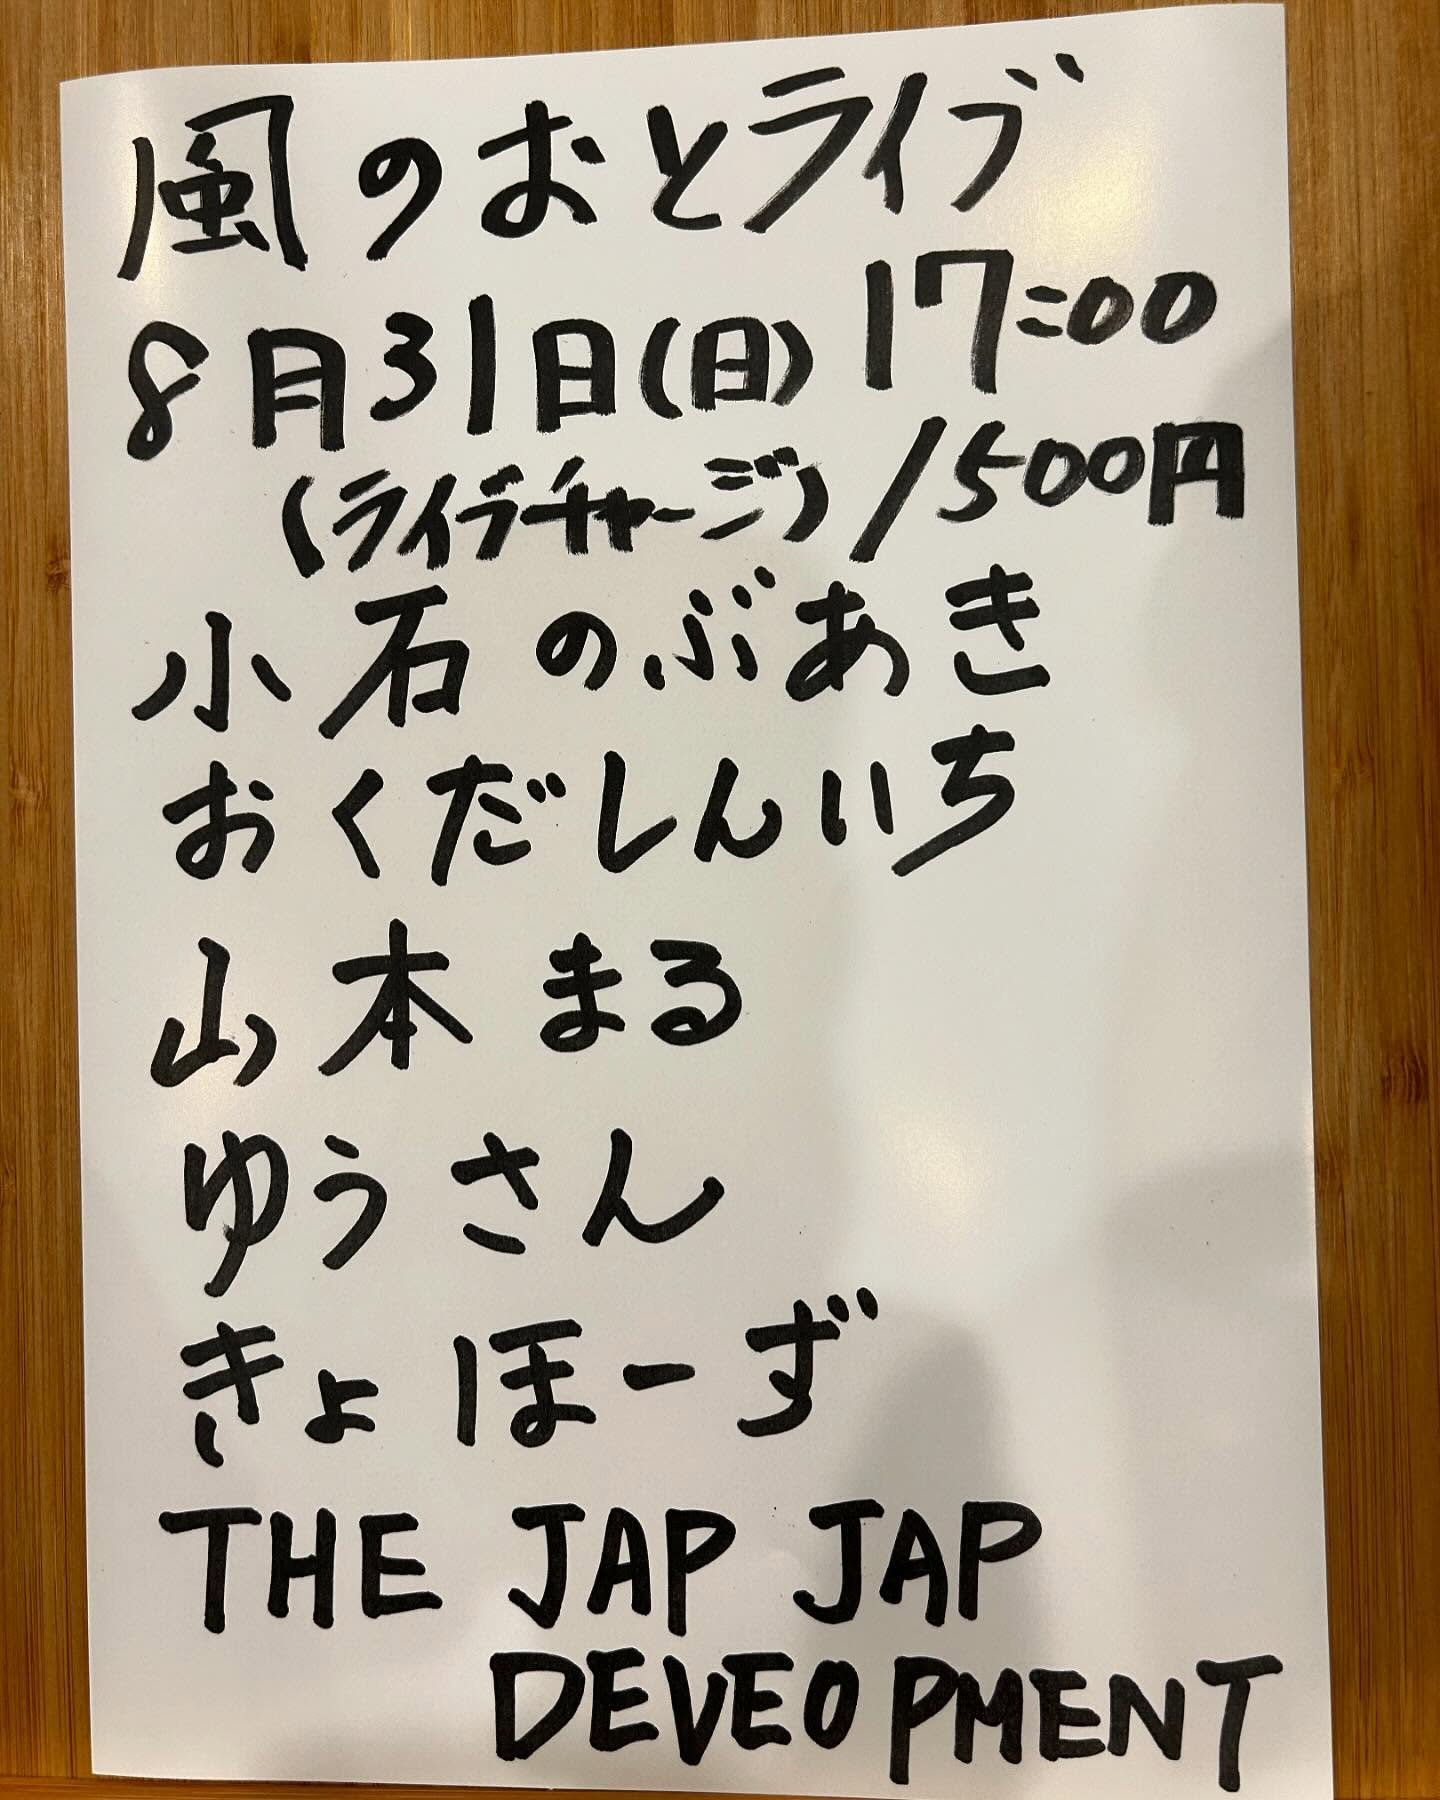 風のおとライブ
8月31日(日) 17:00
(ライブチャージ) 1500円
小石のぶあき
おくだしんいち
山本まる
ゆうさん
きょほーず
THE JAP JAP
DEVEOPMENT